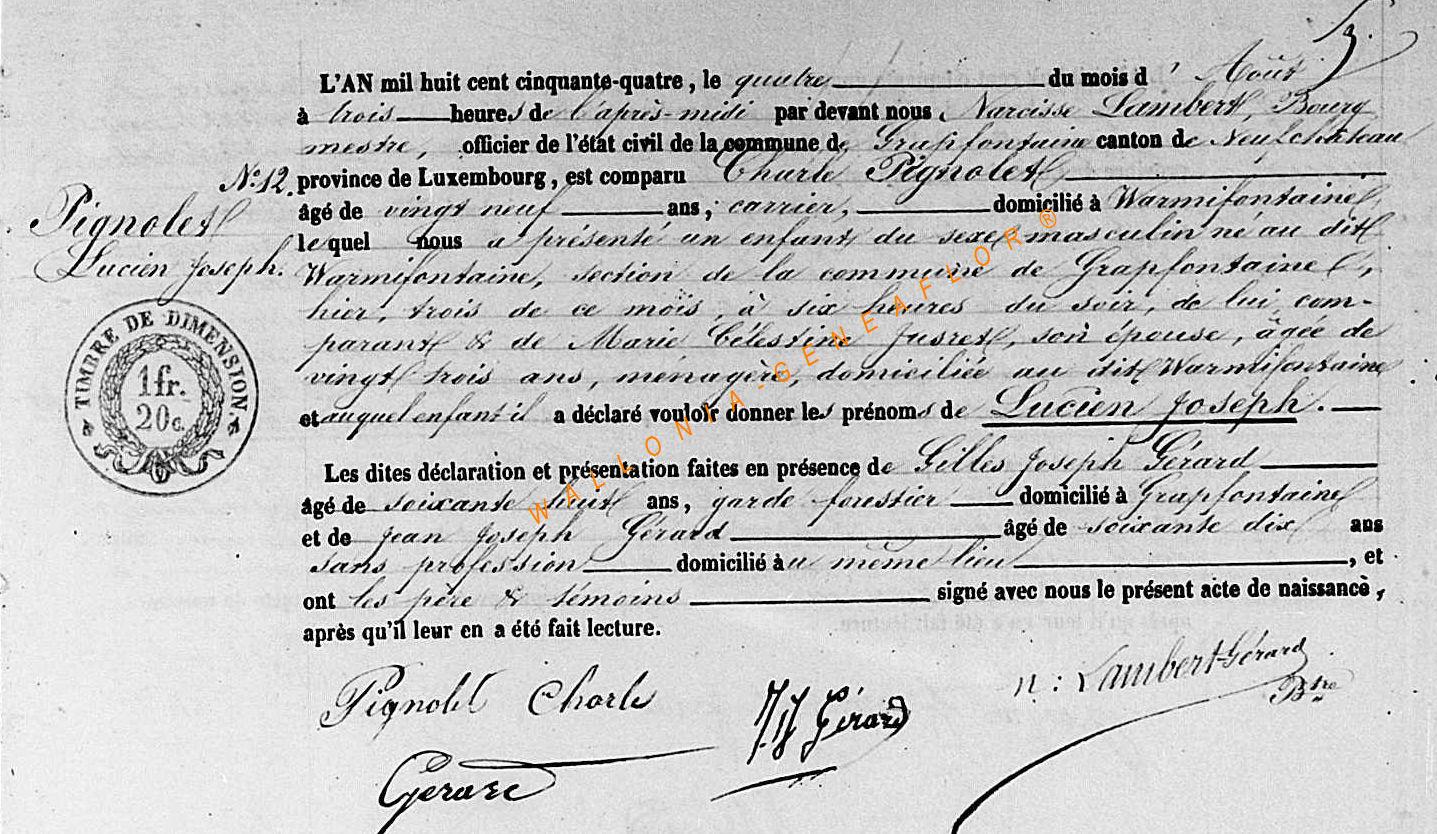 3.
L'AN mil huit cent cinquante-quatre, le quatre du mois d' Août
à trois heures de l'après-midi par devant nous Narcisse Lambert, Bourg
mestre, officier de l'état civil de la commune de Grapfontaine canton de Neufchâteau
N° 12. province de Luxembourg, est comparu Charle Pignolet
Pignolet
âgé de vingt neuf ans, carrier, domicilié à Warmifontaine,
le quel nous a présenté un enfant du sexe masculin né au dit
Lucien Joseph.
Warmifontaine, section de la commune de Grapfontaine,
hier, trois de ce mois, à six heures du soir, de lui com-
parant & de Marie Célestine Jusret, son épouse, âgée de
vingt trois ans, ménagère, domiciliée au dit Warmifontaine
et auquel enfant il a déclaré vouloir donner les prénoms de Lucien Joseph.
TIMBRE DE DIMENSION.
1 fr.
20 c.
Les dites déclaration et présentation faites en présence de Gilles Joseph Gérard
âgé de soixante huit ans, garde forestier domicilié à Grapfontaine
et de Jean Joseph Gérard âgé de soixante dix ans
sans profession domicilié au même lieu, et
ont les père & témoins signé avec nous le présent acte de naissance,
après qu'il leur en a été fait lecture.
Pignolet Charle
JJ Gérard
n: Lambert-Gérard
Btre
Gérard
WALLONIA-GENEAFLOR®